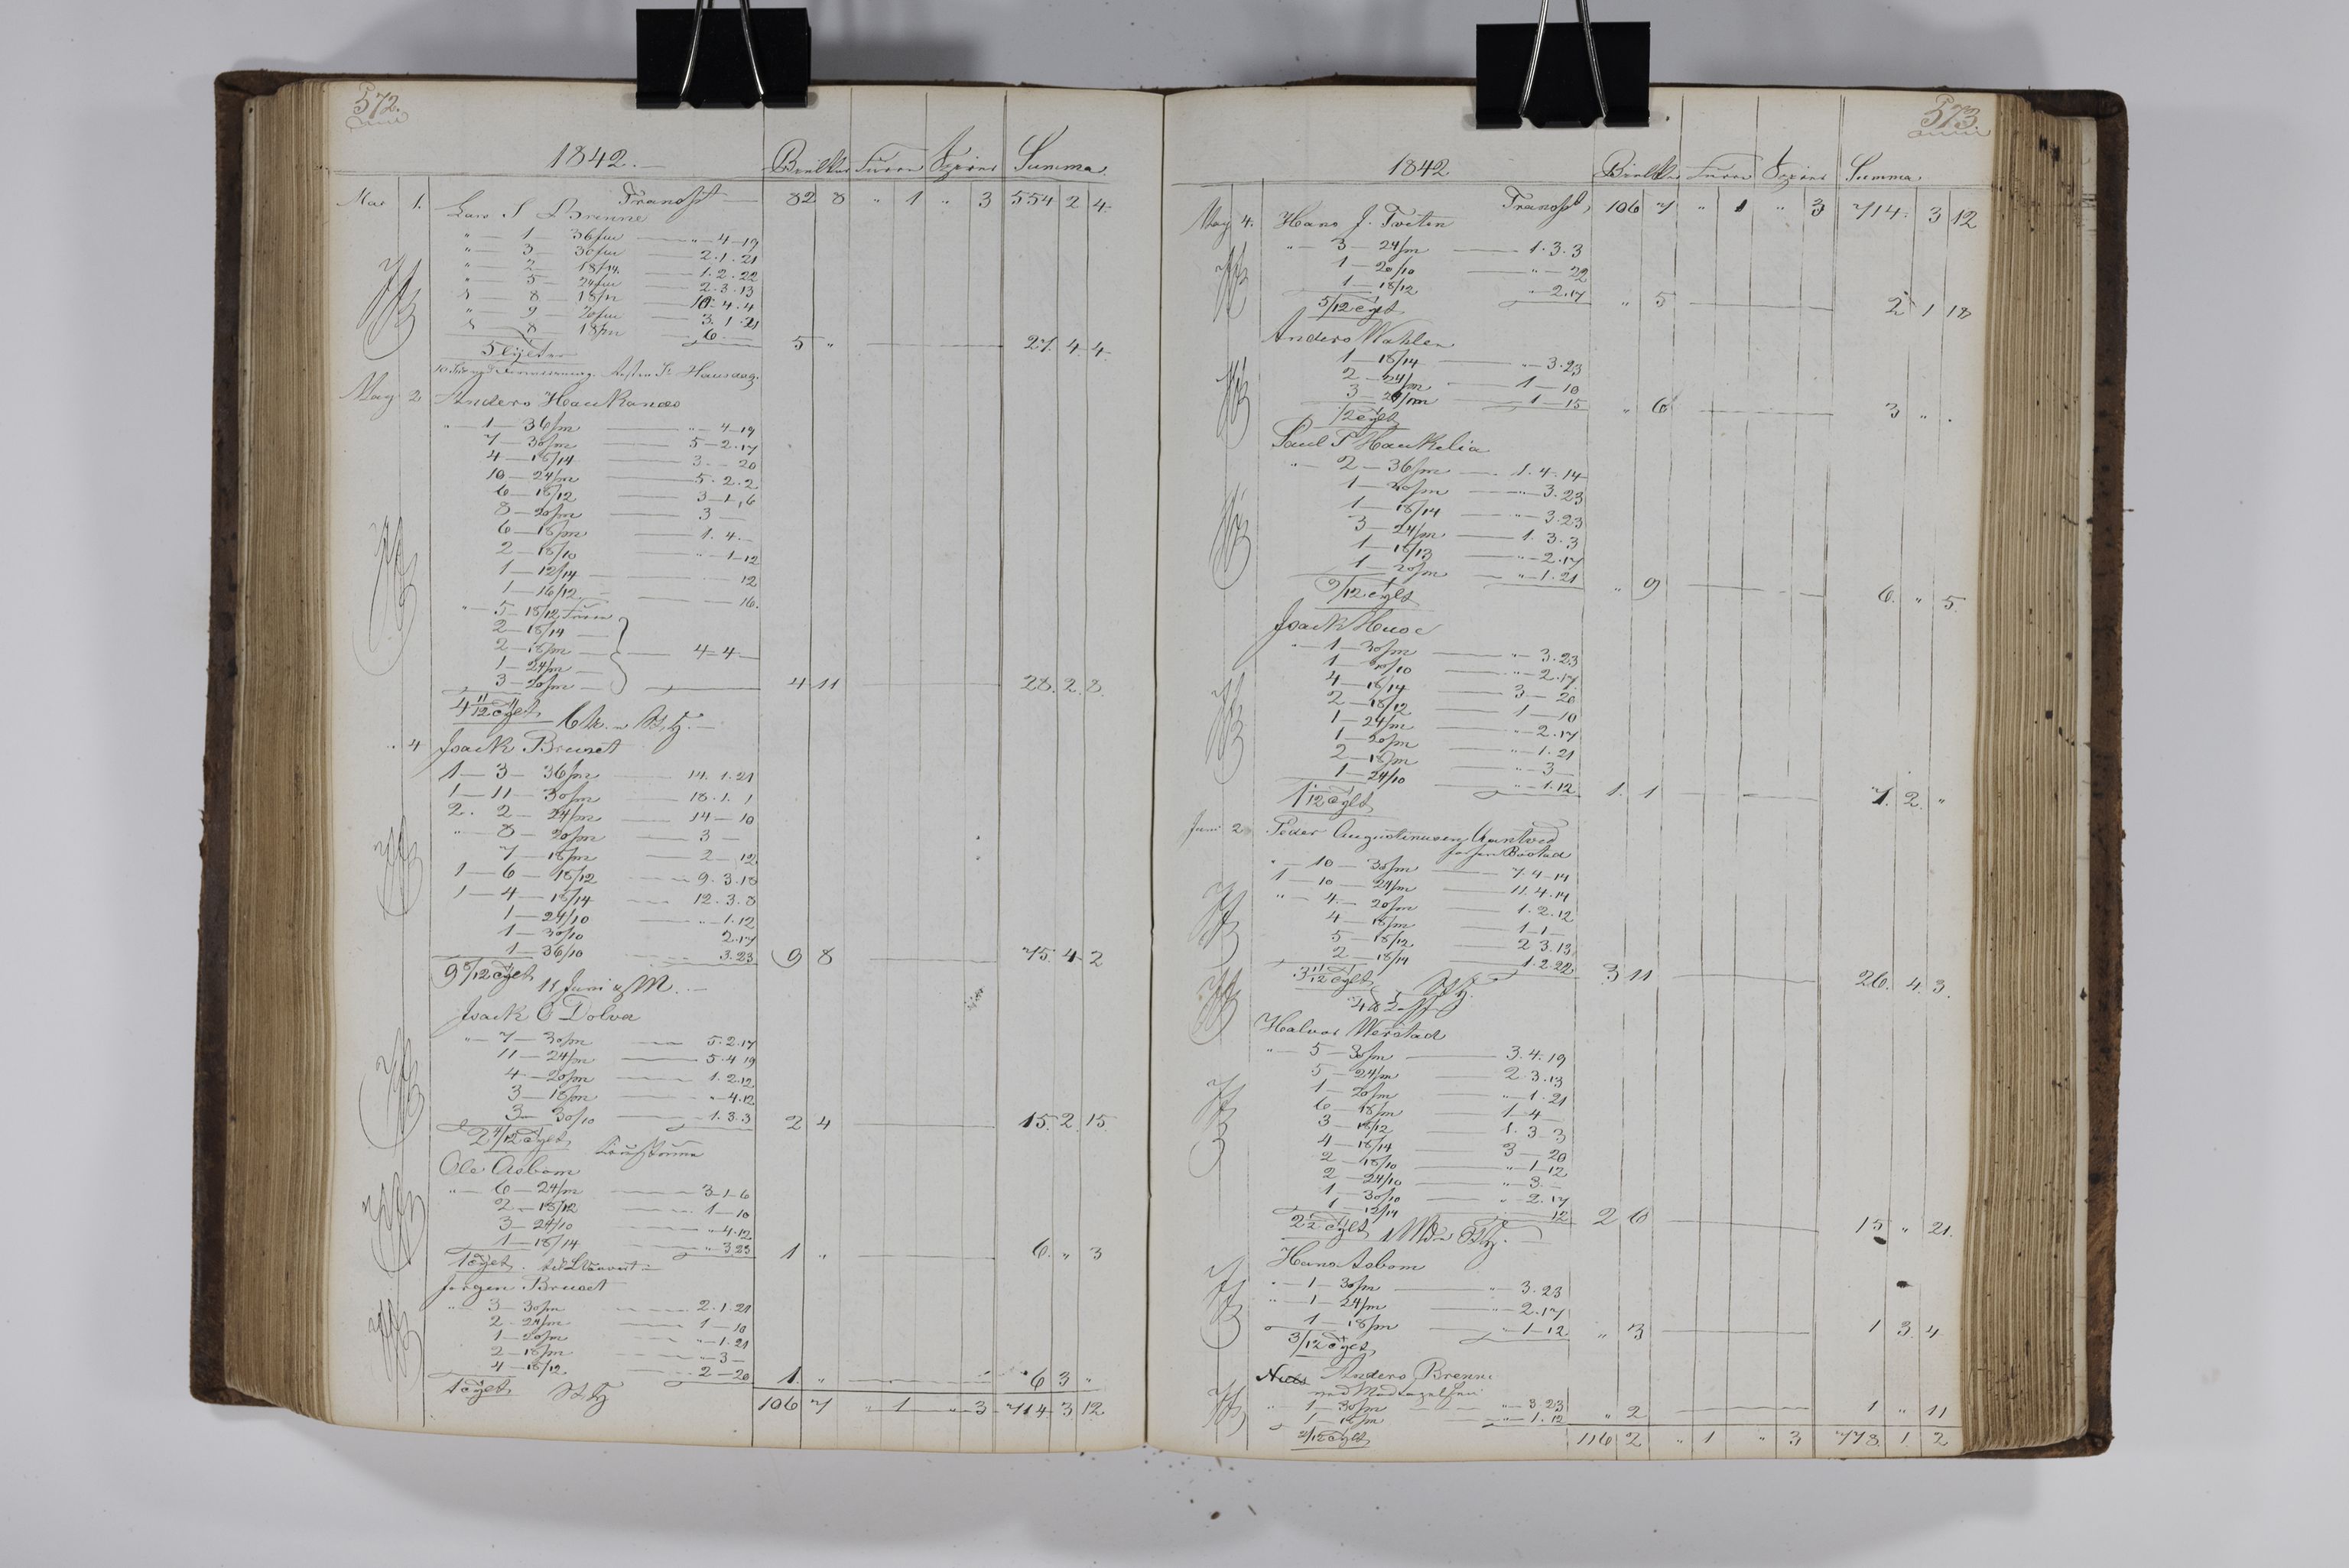 572.
1842. Bielker Furre Expirer Summa.
Transpt 82 8 " 1 " 3 554 2 4
Mai 1. Lars S Brenne
" 1 36/m " 4-19
" 3 30/m 2.1.21
" 2 18/14 1.2.22
" 5 24/m 2.3.13
8 18/12 4.4
" 9 20/m 3.1.21
8 18/m 6
5 " 27. 4. 4
5 cylter
May 2 Anders Haukanæs
" 1 — 36/m " 4-19
7 — 30/m 5-2.17
4 — 18/14 3 - 20
10 — 24/m 5.2.2
6 — 18/12 3-1.6
8 — 20/m 3 —
6 — 18/m 1. 4 -
2 — 18/10 " 1-12
1 — 12/14 12
1 — 16/12 16.
" 5 — 18/12 Furre
2 — 18/14
2 — 18/m 4-4
1 — 24/m
3 — 20/m 4 11 28. 2. 8.
4 11/12 cylt
" 4 Isack Bruset
1 — 3 — 36/m 14. 1.21
1 — 11 — 30/m 18. 1. 1
2. 2 — 24/m 14 — 10
" 8 — 20/m 3 —
7 — 18/m 2 - 12
1 — 6 — 18/12 9. 3.18
1 — 4 — 18/14 12. 3. 8
1 — 24/10 " 1.12
1 — 30/10 2.17
1 — 36/10 3.23 9 8 75. 4 2
9 8/12 cylt 11 Juni
Isack O Dolva
" 7 — 30/m 5.2.17
11 — 24/m 5.4 19
4 — 20/m 1.2.12
3 — 18/m " 4.12
3 — 30/10 1.3.3 2 4 15. 2. 15
2 4/12 cylt
Ole Asbom
" 6 — 24/m 3-1-6
2 — 18/12 1 — 10
3 — 24/10 " 4.12
1 — 18/14 " 3 23 1 " 6. " 3
1 cylt.
Jørgen Bruset
" 3 — 30/m 2.1.21
2 — 24/m 1 — 10
1 — 20/m " 1.21
2 — 18/m " 3 —
4 — 18/12 2 — 20 1. " 6 3 "
1 cylt
106 7 " 1 " 3 714 3 12
573.
1842 Bielker Furre Expirer Summa
Transpt, 106 7 " 1 " 3 714. 3 12
May 4. Hans J. Tveten
" 3 — 24/m 1.3.3
1 — 20/10 " 22
1 — 18/12 " 2.17 " 5 2 1 18
5/12 cylt
Anders Wahlen
1 — 18/14 " 3.23
2 — 24/m 1 — 10
3 — 20/m 1 — 15 " 6 3 " .
1/2 cylt
Paul P Haukelia
" 2 — 36/m 1.4.14
1 — 30/m " 3.23
1 — 18/14 " 3.23
3 — 24/m 1. 3.3
1 — 18/13 " 2.17
1 — 20/m " 1.21 " 9 6. " 5.
9/12 cylt
Isack Huse
" 1 — 30/m " 3.23
1 — 30/10 " 2.17
4 — 18/14 3 — 20
2 — 18/12 1 — 10
1 — 24/m " 2.17
1 — 20/m " 1.21
2 — 18/m " 3 —
1 — 24/10 " 1.12 1. 1 7. 2. "
1 1/12 cylt
Juni 2 Peder Augustinusen
" 10 — 30/m 7.4-14
1 — 10 — 24/m 11.4.14
" 4 — 20/m 1.2.12
4 — 18/m 1-1 —
5 — 18/12 2 3.13
2 — 18/14 1.2.22 3 11 26. 4. 3.
3 11/12 cylt
Halvor Werstad
" 5 — 30/m 3.4.19
5 — 24/m 2 3.13
1 — 20/m " 1.21
6 — 18/m 1-4
3 — 18/12 1. 3-3
4 — 18/14 3 — 20
2 — 18/10 " 1-12
2 — 24/10 " 3. —
1 — 30/10 " 2.17
1 12/14 12 2 6 15 " 21.
2 1/2 cylt
Hans Asbom
" 1 — 30/m " 3.23
" 1 — 24/m " 2.17
1 — 18/m " 1-12 " 3 1 3 4
3/12 cylt
Anders Brenne
" 1 — 30/m " 3.23
1 — 18/m " 1.12 " 2 1 " 11
2/12 cylt
116 2 " 1 " 3 778. 1. 2